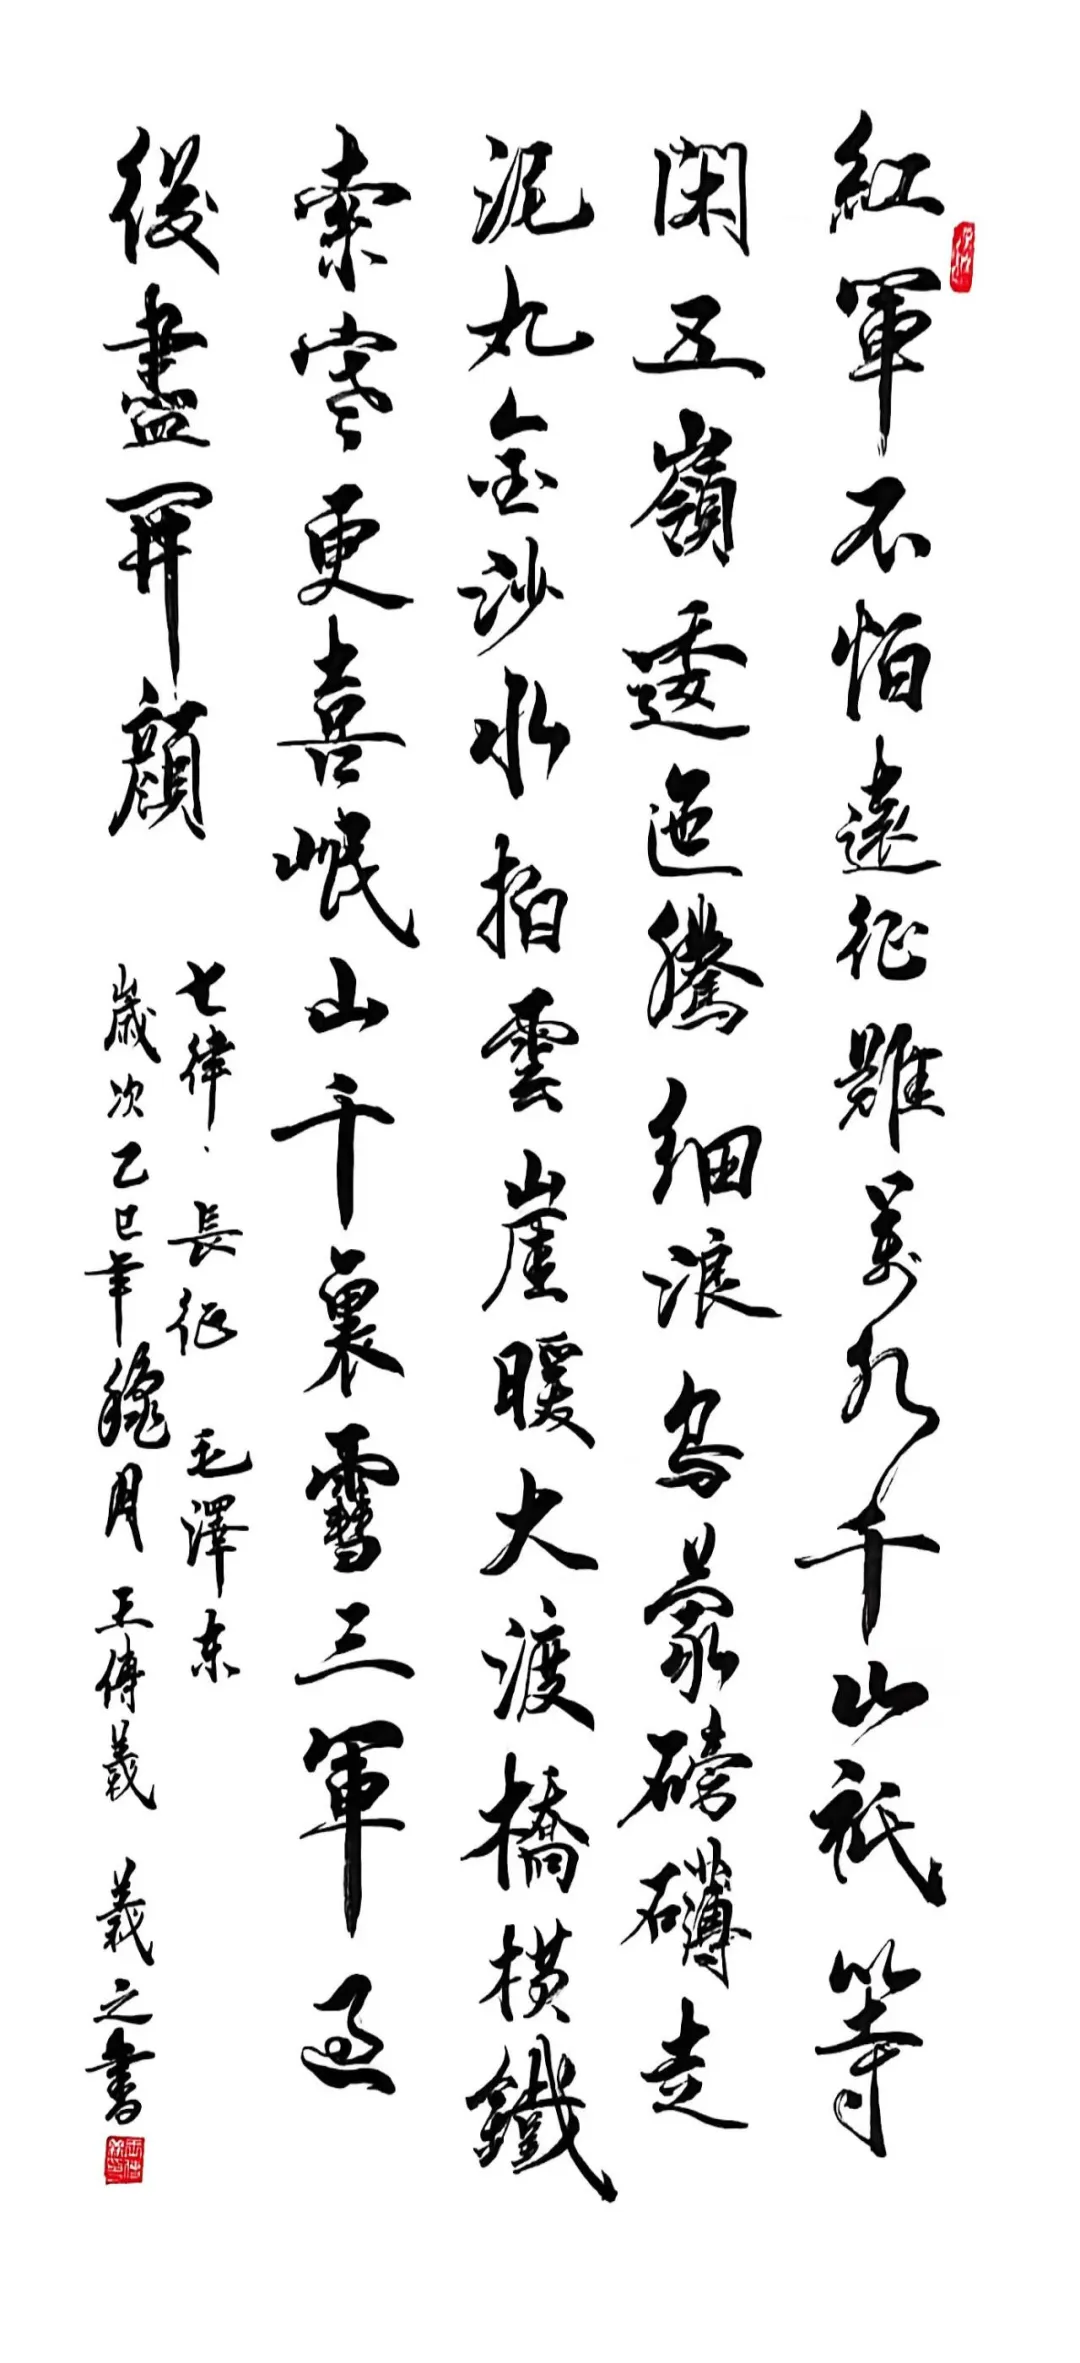 紅軍不怕遠征難萬水千山祇等
閑五嶺逶迤騰細浪烏蒙磅礴走
泥丸金沙水拍雲崖暖大渡橋橫鐵
索寒更喜岷山千里雪三軍過
後盡開顔
七律·長征 毛澤东
歲次乙巳年 月 王傳義 義之書